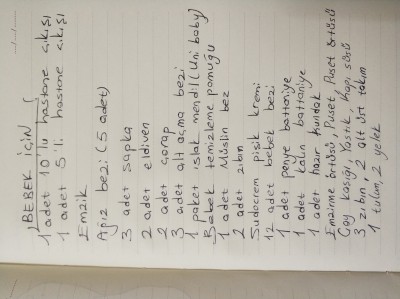 BEBEK İÇİN
1 adet 10'lu hastane çıkışı
1 adet 5'li hastane çıkışı
Emzik
Ağız bezi (5 adet)
3 adet şapka
2 adet eldiven
2 adet çorap
3 adet alt açma bezi
1 paket ıslak mendil (Uni baby)
Bebek temizleme pamuğu
1 adet Müslin bez
2 adet zıbın
Sudocrem pişik kremi
12 adet bebek bezi
1 adet penye battaniye
1 adet kalın battaniye
1 adet hazır kundak
Emzirme örtüsü, Puset, Puset örtüsü
Çay kaşığı, Yastık, Kapı süsü
3 zıbın, 2 alt üst takım
1 tulum, 2 yelek